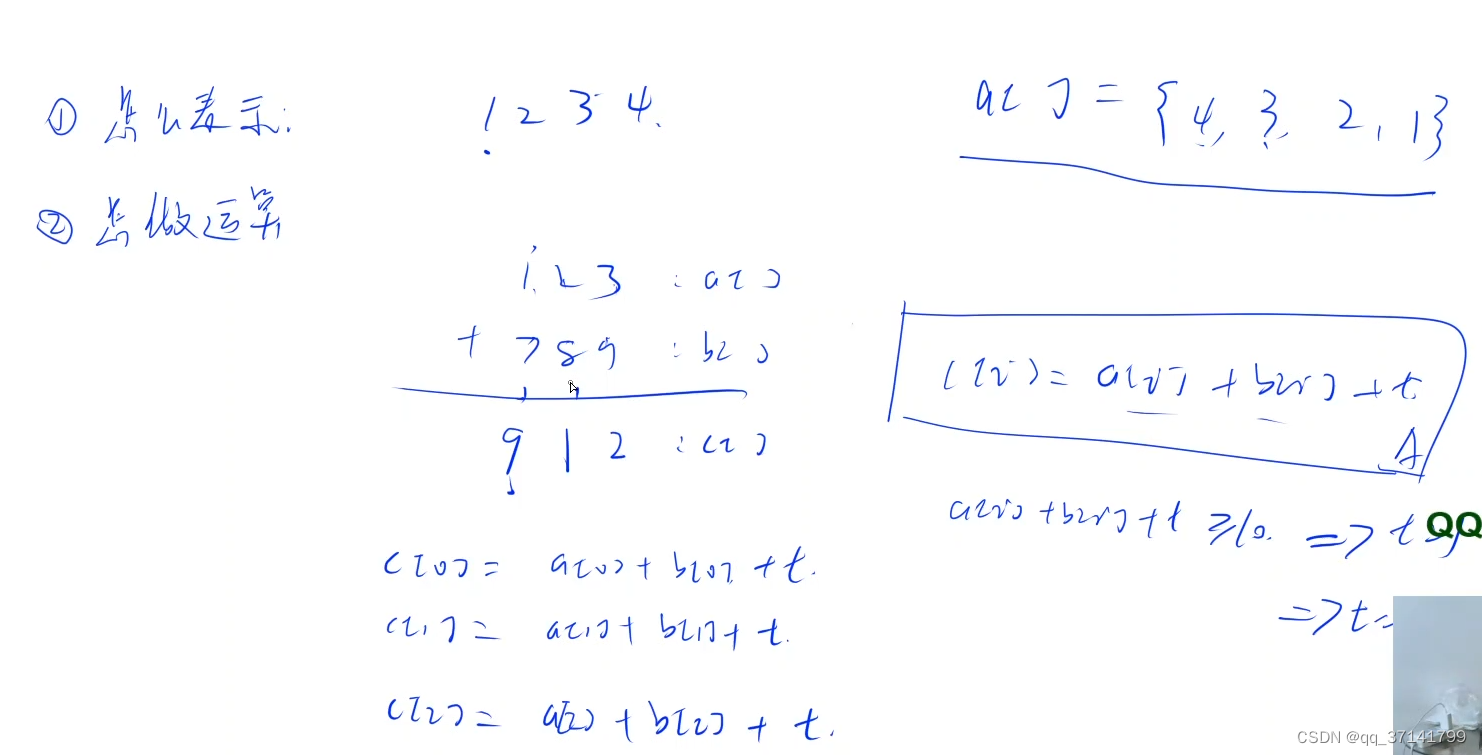 ① 怎么表示: 1 2 3 4. a[ ] = {4, 3, 2, 1}
② 怎做运算
1 2 3 : a[ ]
+ 7 8 9 : b[ ]
9 1 2 : c[ ]
c[i] = a[i] + b[i] + t
a[i] + b[i] + t ≥ 10. => t
=> t =
c[0] = a[0] + b[0] + t.
c[1] = a[1] + b[1] + t.
c[2] = a[2] + b[2] + t.
QQ
CSDN @qq_37141799